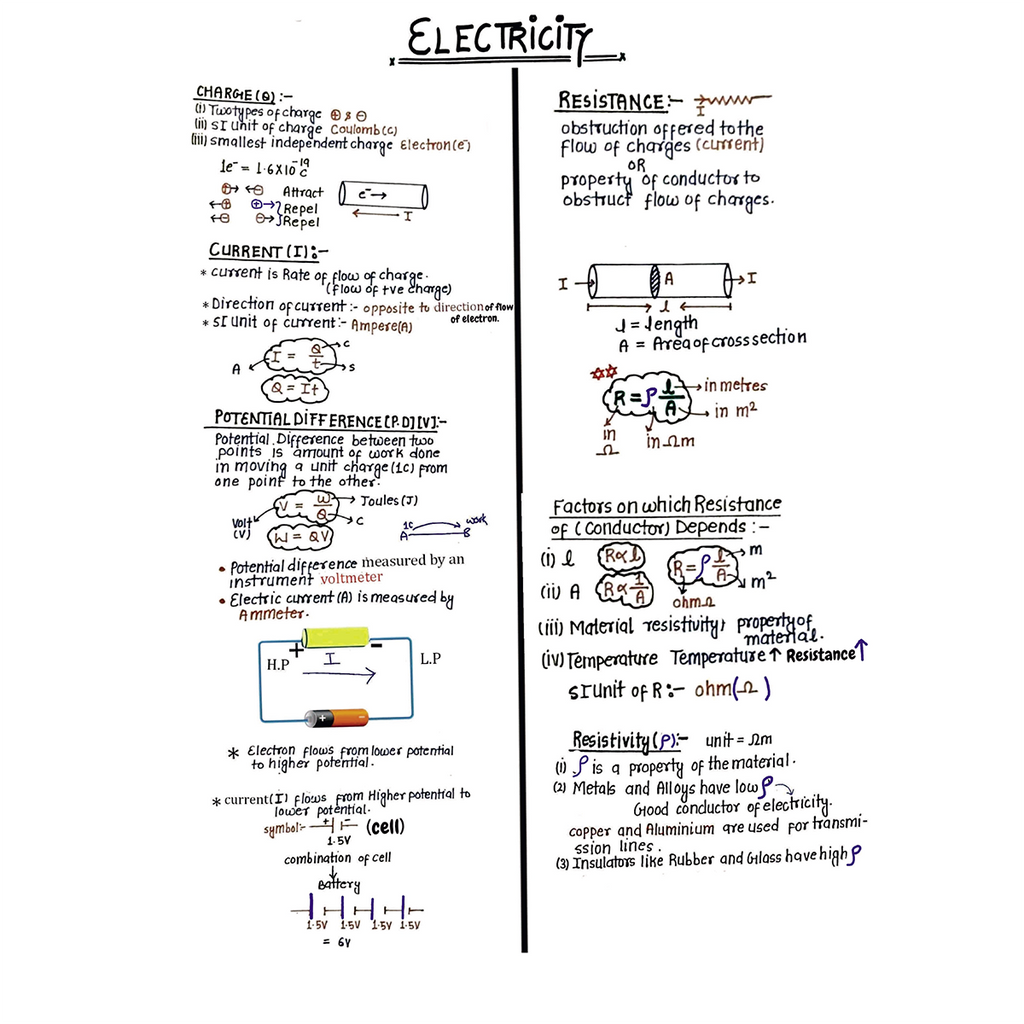 ELECTRICITY
CHARGE(Q):-
(i) Two types of charge ⊕ & ⊖
(ii) SI Unit of charge Coulomb(c)
(iii) smallest independent charge Electron(e⁻)
1e⁻ = 1.6X10⁻¹⁹ c
⊕→ ←⊖ Attract
←⊕ ⊕→ } Repel
←⊖ ⊖→ } Repel
e⁻→
← I
CURRENT(I):-
* current is Rate of flow of charge.
(flow of +ve charge)
* Direction of current :- opposite to direction of flow
of electron.
* SI Unit of current:- Ampere(A)
I = Q/t
A
C
S
Q = It
POTENTIAL DIFFERENCE[P.D][V]:-
Potential Difference between two
points is amount of work done
in moving a unit charge(1c) from
one point to the other.
V = W/Q → Joules(J)
→ C
Volt
(V)
W = QV
1c work
A B
• Potential difference measured by an
instrument voltmeter
• Electric current (A) is measured by
Ammeter.
+ -
H.P I L.P
+
* Electron flows from lower potential
to higher potential.
* current(I) flows from Higher potential to
lower potential.
symbol:- + - (cell)
1.5V
combination of cell
↓
Battery
1.5V 1.5V 1.5V 1.5V
= 6V
RESISTANCE:-
I
obstruction offered to the
flow of charges (current)
OR
property of conductor to
obstruct flow of charges.
I → A → I
l
l = length
A = Area of cross section
R = ρ l/A
→ in metres
→ in m²
in
Ω
in Ωm
Factors on which Resistance
of (Conductor) Depends :-
(i) l R∝l
R = ρ l/A
m
m²
ohmΩ
(ii) A R∝1/A
(iii) Material resistivity, property of
material.
(iv) Temperature Temperature↑ Resistance↑
SI unit of R:- ohm(Ω)
Resistivity(ρ):- unit = Ωm
(i) ρ is a property of the material.
(2) Metals and Alloys have low ρ
Good conductor of electricity.
copper and Aluminium are used for transmi-
ssion lines.
(3) Insulators like Rubber and Glass have high ρ